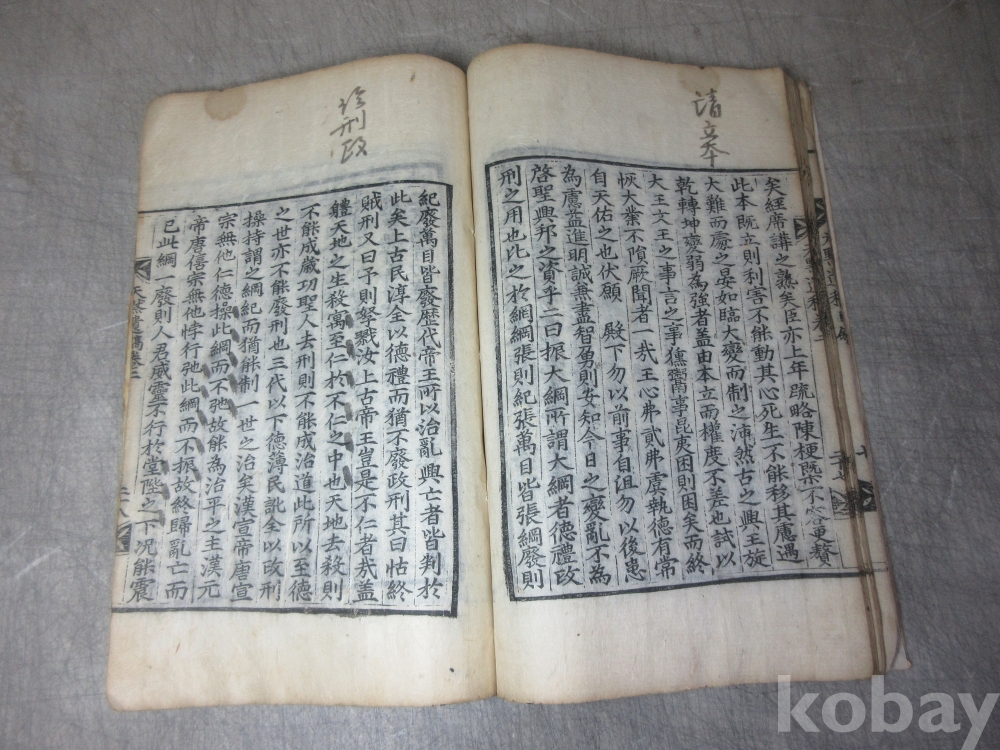 請立本
矣經席講之熟矣臣亦上年疏略陳梗槩不必更贅
此本旣立則利害不能動其心死生不能移其慮遇
大難而處之晏如臨大變而制之沛然古之興王旋
乾轉坤變弱為強者盖由本立而權度不差也試以
大王文王之事言之事獯鬻事昆夷困則困矣而終
恢大業不隕厥聞者一哉王心弗貳弗虞執德有常
自天佑之也伏願 殿下勿以前事自沮勿以後患
為慮益進明誠兼盡智勇則安知今日之變亂不為
啓聖興邦之資乎二曰振大綱所謂大綱者德禮政
刑之用也比之於網綱張則紀張萬目皆張綱廢則
論刑政
紀廢萬目皆廢歷代帝王所以治亂興亡者皆判於
此矣上古民淳全以德禮而猶不廢政刑其曰怙終
賊刑又曰予則孥戮汝上古帝王豈是不仁者哉盖
軆天地之生殺寓至仁於不仁之中也天地去殺則
不能成歲功聖人去刑則不能成治道此所以至德
之世亦不能廢刑也三代以下德薄民訛全以政刑
操持謂之綱紀而猶能制一世之治矣漢宣帝唐宣
宗無他仁德操此綱而不弛故能為治平之主漢元
帝唐僖宗無他悖行弛此綱而不振故終歸亂亡而
已此綱一廢則人君威靈不行於堂陛之下况能震
遺稿卷二
kobay